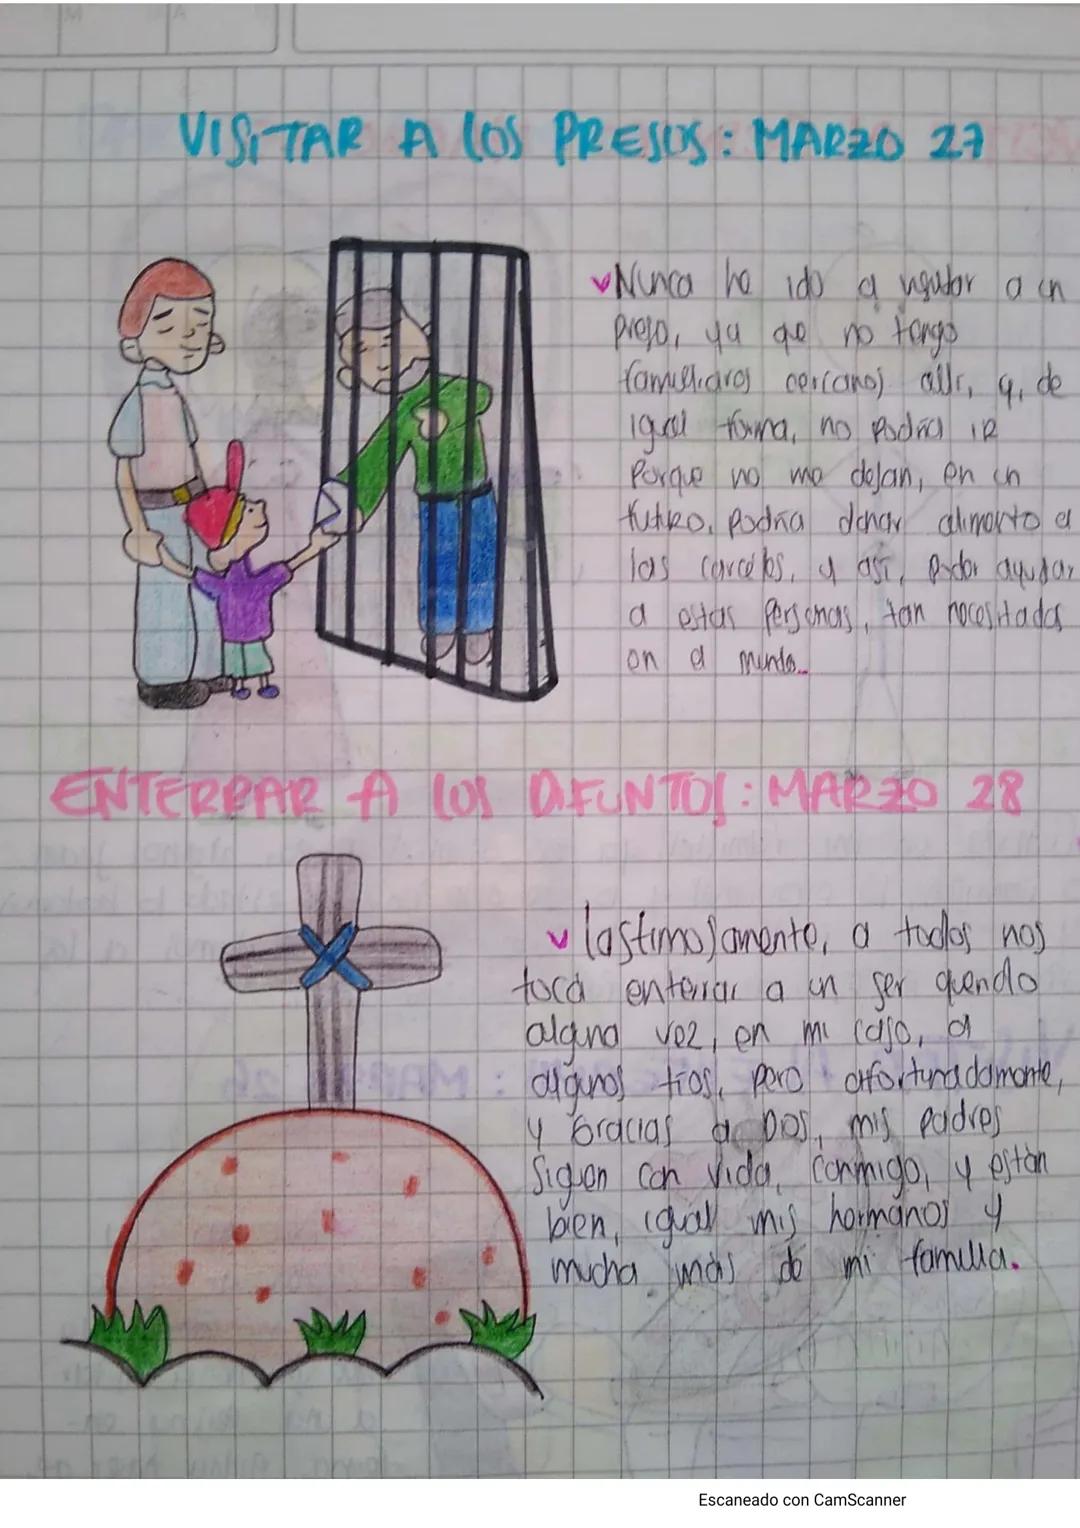 VISITAR A LOS PRESOS: MARZO 27
Nunca he ido a visitar a un
preso, ya que no tengo
familiares cercanos allí, y, de
igual forma, no podría ir
porque no me dejan, en un
futuro, podría donar alimento a
las carceles, y así, poder ayudar
a estas personas, tan necesitadas
en el mundo...
ENTERRAR A LOS DIFUNTOS: MARZO 28
Lastimosamente, a todos nos
toca enterrar a un ser querido
alguna vez, en mi caso, a
algunos tíos, pero afortunadamente,
y Gracias a Dios, mis padres
Siguen con vida, conmigo, y están
bien, igual mis hermanos y
mucha más de mi familia.
Escaneado con CamScanner